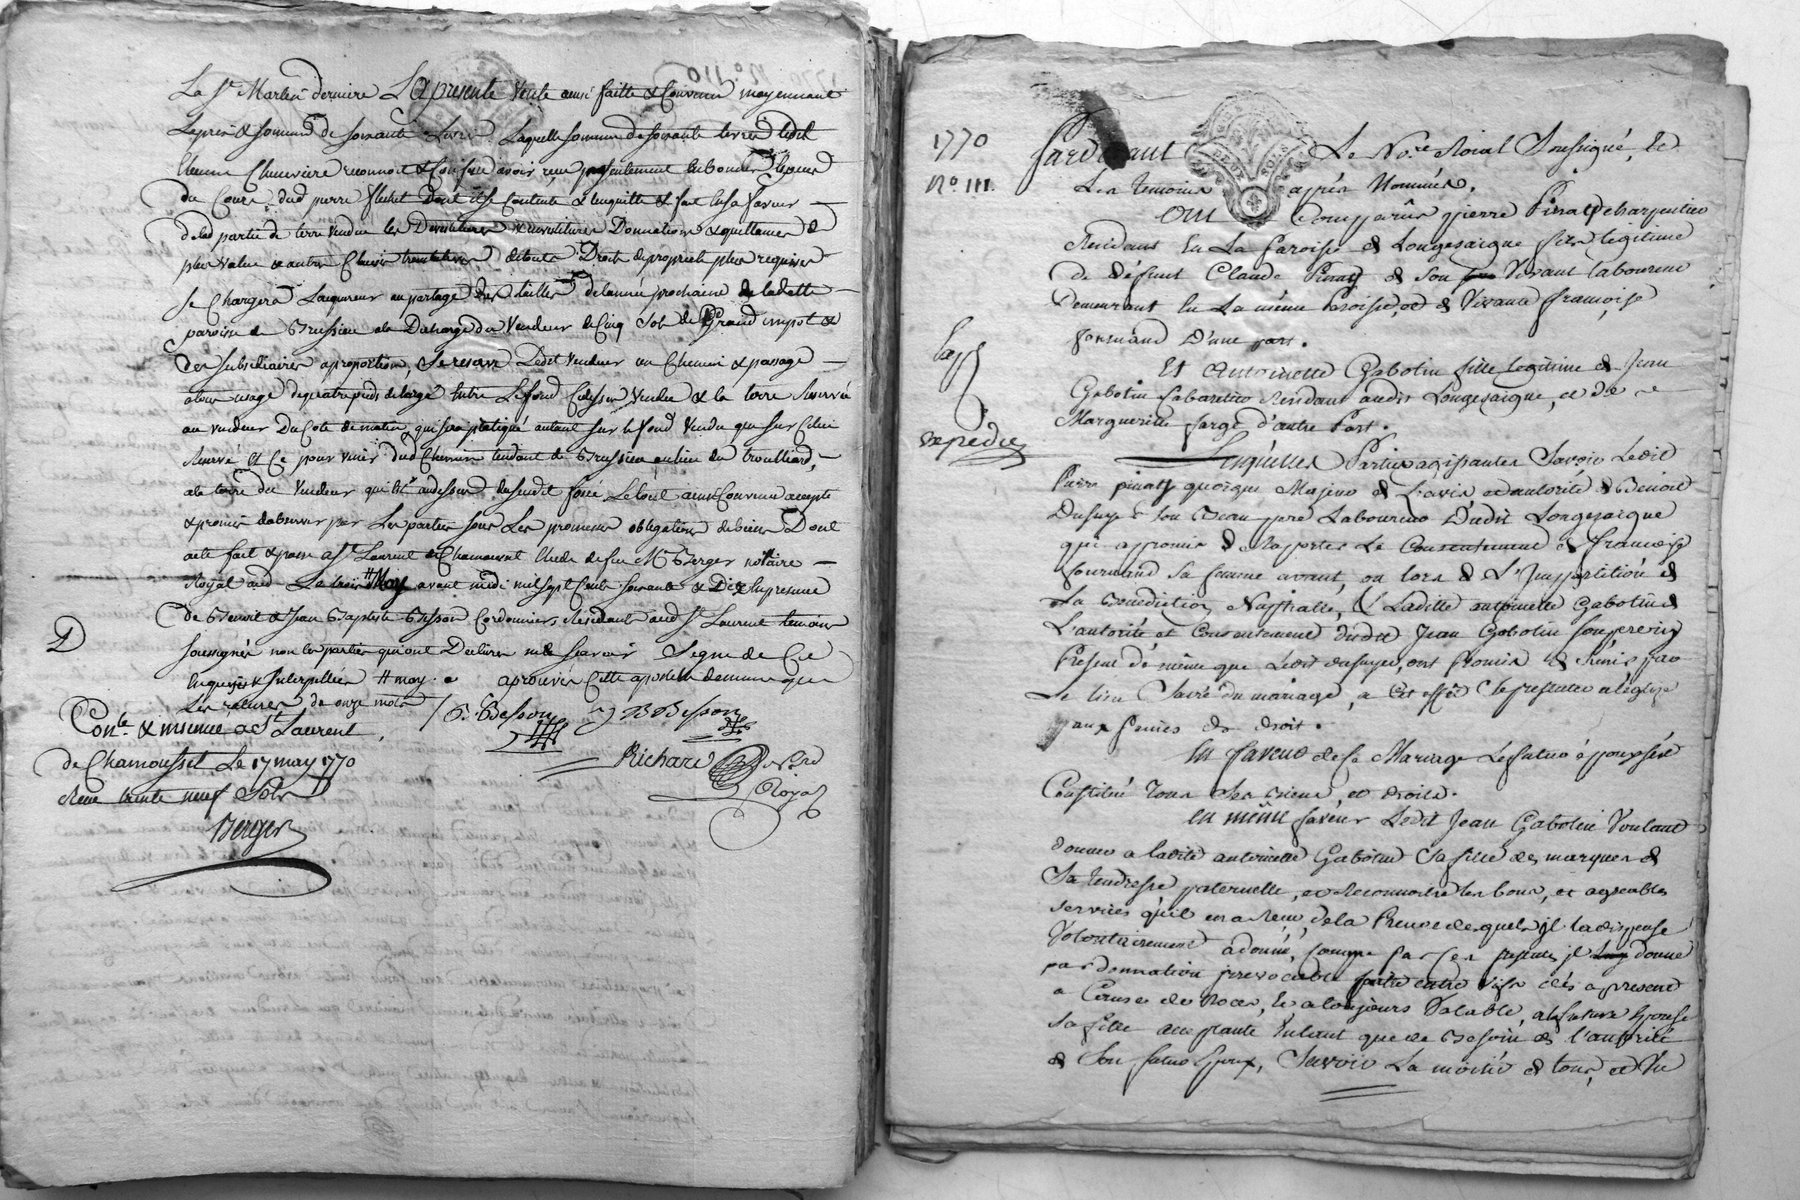 La St Martin derniere La presente Vente ainsi faitte & Convenue moyennant
Le prix & somme de soixante Livres Laquelle somme de soixante Livres ledit
reconnoit & Confesse avoir reçu presentement
du Cours, dud pierre dont il se Contente & quitte & fait en sa faveur
de lad partie de terre vendue les Devestitures investitures Donnations & quittances de
plus value & autres Clauses translatives de tous Droits de propriété plus requises
se Chargera Laquereur au partage des tailles de lannée prochaine de ladette
paroisse de Brussieu a la Decharge du Vendeur de Cinq Sols de Grand impot &
des subsidiaires a proportion, se reserve Ledit Vendeur un Chemin & passage
a leur usage de quatre pieds de large Entre Le fond Cy dessus Vendu & la terre reservée
au vendeur Du Coté de matin, qui sera pratiqué autant sur le fond Vendu que sur Celui
reservé Et Ce pour venir dud Chemin tendant de Brussieu au lieu du trouilliard,
a la terre du Vendeur qui Est au dessous du susdit fossé Le tout ainsi Convenu accepté
& promis dobserver par Les parties sous Les promesses obligations de biens Dont
acte fait & passé a St Laurent de Chamousset Etude de feu Me Berger notaire
Royal aud Le trois # May avant midi mil sept Cents soixante & Dix En presence
de Benoit & Jean Baptiste Besson Cordonniers Residants aud St Laurent temoins
soussignés non les parties qui ont Declaré ne sçavoir Signer de Ce
Enquises & Interpellées # may aprouvés Cette apostille de meme que
Les ratures de onze mots
B. Besson J B Besson
Richard Not
Royal
Conle & insinué a St Laurent
de Chamousset Le 17 may 1770
Reçu trente neuf Sols
Berger
1770
No 111.
Pardevant Le Nore Roial Soussigné, et
Les temoins après Nommés.
Ont Comparûs pierre Pinay charpentier
Residant En La Paroisse de Longesaigne fils legitime
de défunt Claude Pinay de son Vivant laboureur
demeurant En La même Paroisse, et de Vivante françoise
fournand D'une part.
Et Antoinette Gabolin fille legitime de Jean
Gabolin Cabaretier Residant audit Longesaigne, et de
Marguerite farge d'autre Part.
Lesquelles Parties agissantes Savoir Ledit
Pierre pinay quoique Majeur de L'avis et autorité de Benoit
Dusuye son Beau pere Laboureur Dudit Longesaigne
qui a promis de Rapporter Le Consentement de françoise
fournand sa femme avant, ou lors de L'Impartition de
La Benediction Nuptialle, Et Laditte antoinette Gabolin de
L'autorité et Consentement dudit Jean Gabolin son pere icy
Present de même que Ledit dusuye, ont Promis de s'unir par
Le lien Sacré du mariage, a Cet effet se presenter a l'eglize
aux peines de droit.
En faveur de ce Mariage Le futur epoux s'est
Constitué Tous Ses Biens, et droits.
En même faveur Ledit Jean Gabolin Voulant
donner a ladite antoinette Gabolin sa fille des marques de
sa tendresse paternelle, et Reconnoitre les bons, et agreables
services qu'il en a Reçu, de la Preuve desquels il la dispense
Volontairement a donné, comme par ces presentes il donne
par donnation irrevocable faitte entre vifs dès a present
a Cause de Noces, Et a toujours Valable, a la future Epouse
sa fille acceptante Entant que de Besoin de l'autorité
de son futur Epoux, Savoir La moitié de tous, et Un
expediée